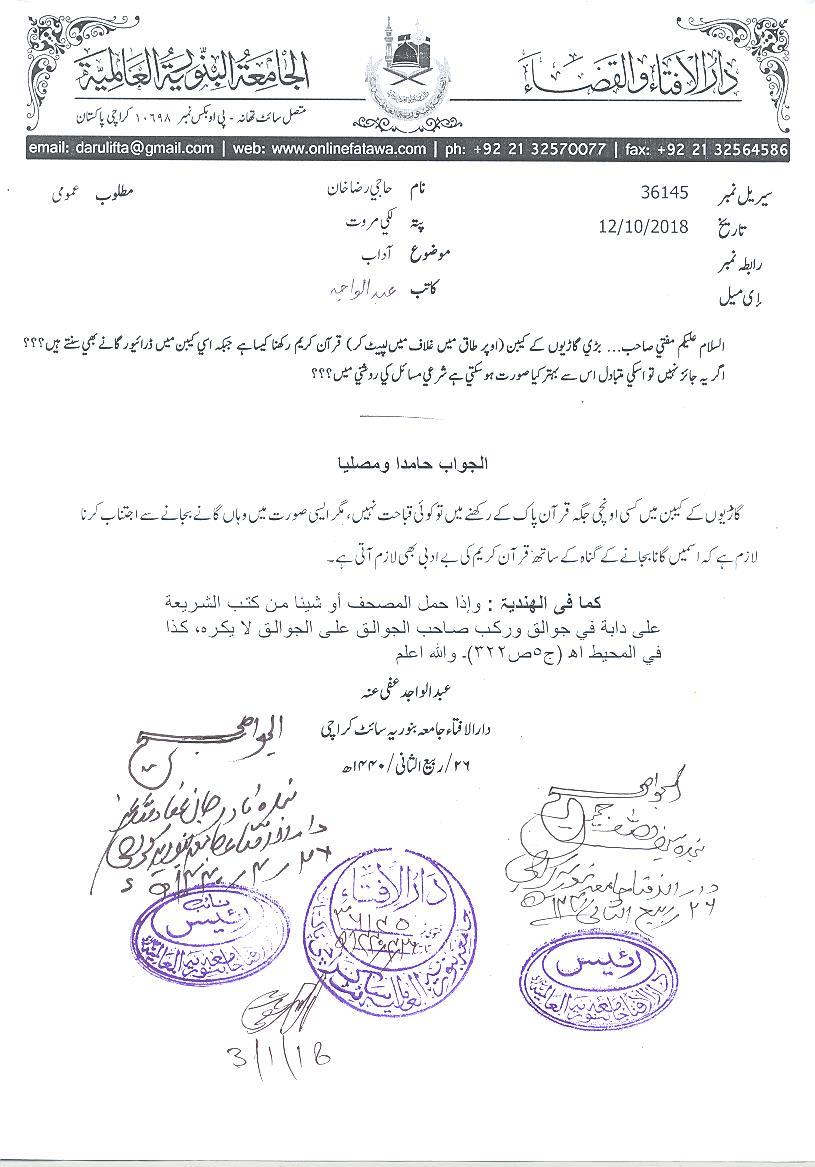 دار الافتاء والقضاء
الجامعة البنورية العالمية
متصل سائٹ تھانہ - پی او بکس نمبر ۱۰۶۹۸ کراچی پاکستان
email: darulifta@gmail.com | web: www.onlinefatawa.com | ph: +92 21 32570077 | fax: +92 21 32564586
سیریل نمبر 36145 نام حاجی رضا خان مطلوب عمومی
تاریخ 12/10/2018 پتہ لکی مروت
رابطہ نمبر موضوع آداب
ای میل کاتب عبدالواجد
السلام علیکم مفتی صاحب... بڑی گاڑیوں کے کیبن (اوپر طاق میں غلاف میں لپیٹ کر) قرآن کریم رکھنا کیسا ہے جبکہ اسی کیبن میں ڈرائیور گانے بھی سنتے ہیں؟؟؟
اگر یہ جائز نہیں تو اسکی متبادل اس سے بہتر کیا صورت ہو سکتی ہے شرعی مسائل کی روشنی میں؟؟؟
الجواب حامدا ومصلیا
گاڑیوں کے کیبن میں کسی اونچی جگہ قرآن پاک کے رکھنے میں تو کوئی قباحت نہیں، مگر ایسی صورت میں وہاں گانے بجانے سے اجتناب کرنا
لازم ہے کہ اسمیں گانا بجانے کے گناہ کے ساتھ قرآن کریم کی بے ادبی بھی لازم آتی ہے۔
کما فی الھندیۃ : وإذا حمل المصحف أو شيئا من كتب الشريعة
على دابة في جوالق وركب صاحب الجوالق على الجوالق لا يكره، كذا
في المحيط اھ (ج٥ص٣٢٢)۔ والله اعلم
عبدالواجد عفی عنہ
دارالافتاء جامعہ بنوریہ سائٹ کراچی
۲۶/ربیع الثانی/۱۴۴۰ھ
الجواب صحیح
بندہ نادر جان عفا اللہ عنہ
دارالافتاء جامعہ بنوریہ کراچی
الجواب صحیح
بندہ
دارالافتاء جامعہ بنوریہ کراچی
۲۶ ربیع الثانی
نائب رئیس
دارالافتاء جامعہ بنوریہ العالمیہ
دارالافتاء
۳۶۱۴۵
رئیس
دارالافتاء جامعہ بنوریہ العالمیہ
3/1/18